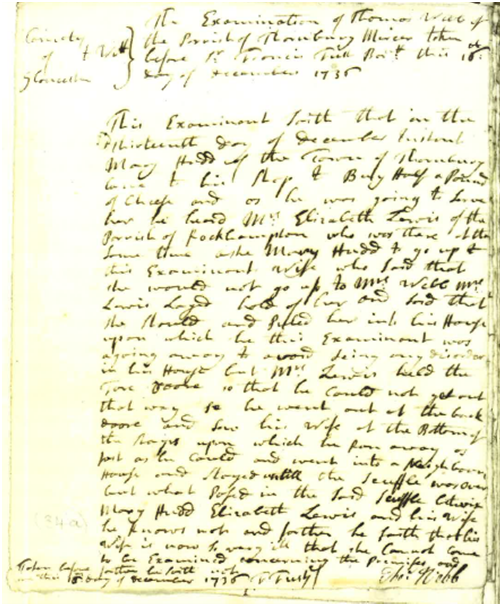 County
of } to Witt
Gloucester
The Examination of Thomas Webb of
the Parish of Thornbury Mercer taken
before Sr. Francis Fust Bart. this 16
day of December 1736
This Examinant Saith that on the
thirteenth day of December Instant
Mary Hudd of the Town of Thornbury
Came to his Shop to Buy Half a Pound
of Cheese and as he was going to Serve
her he heard Mrs Elizabeth Lewis of the
Parish of Rockhampton who was there at the
Same time aske Mary Hudd to go up to
this Examinant Wife who Said that
She would not go up to Mrs Webb Mrs
Lewis Layd hold of her and Said that
She Should and Puled her into his House
upon which he this Examinant was
agoing away to avoid Seing any disorder
in his House but Mrs Lewis held the
Fore Doore so that he Could not get out
that way So he went out at the back
doore and Saw his Wife at the Bottom of
the Stayrs upon which he Ran away as
fast as he Could and went into a Neighbours
House and Stayed untill the Scuffle was over
but what Pased in the Said Scuffle Betwixt
Mary Hudd Elizabeth Lewis and his Wife
he knows not and further he Saith that his
Wife is now So very ill that she Cannot Come
to be Examined concerning the Premises and
further he Saith not
Taken before
me this 16 day of december 1736 F Fust
Tho: Webb
(34a)